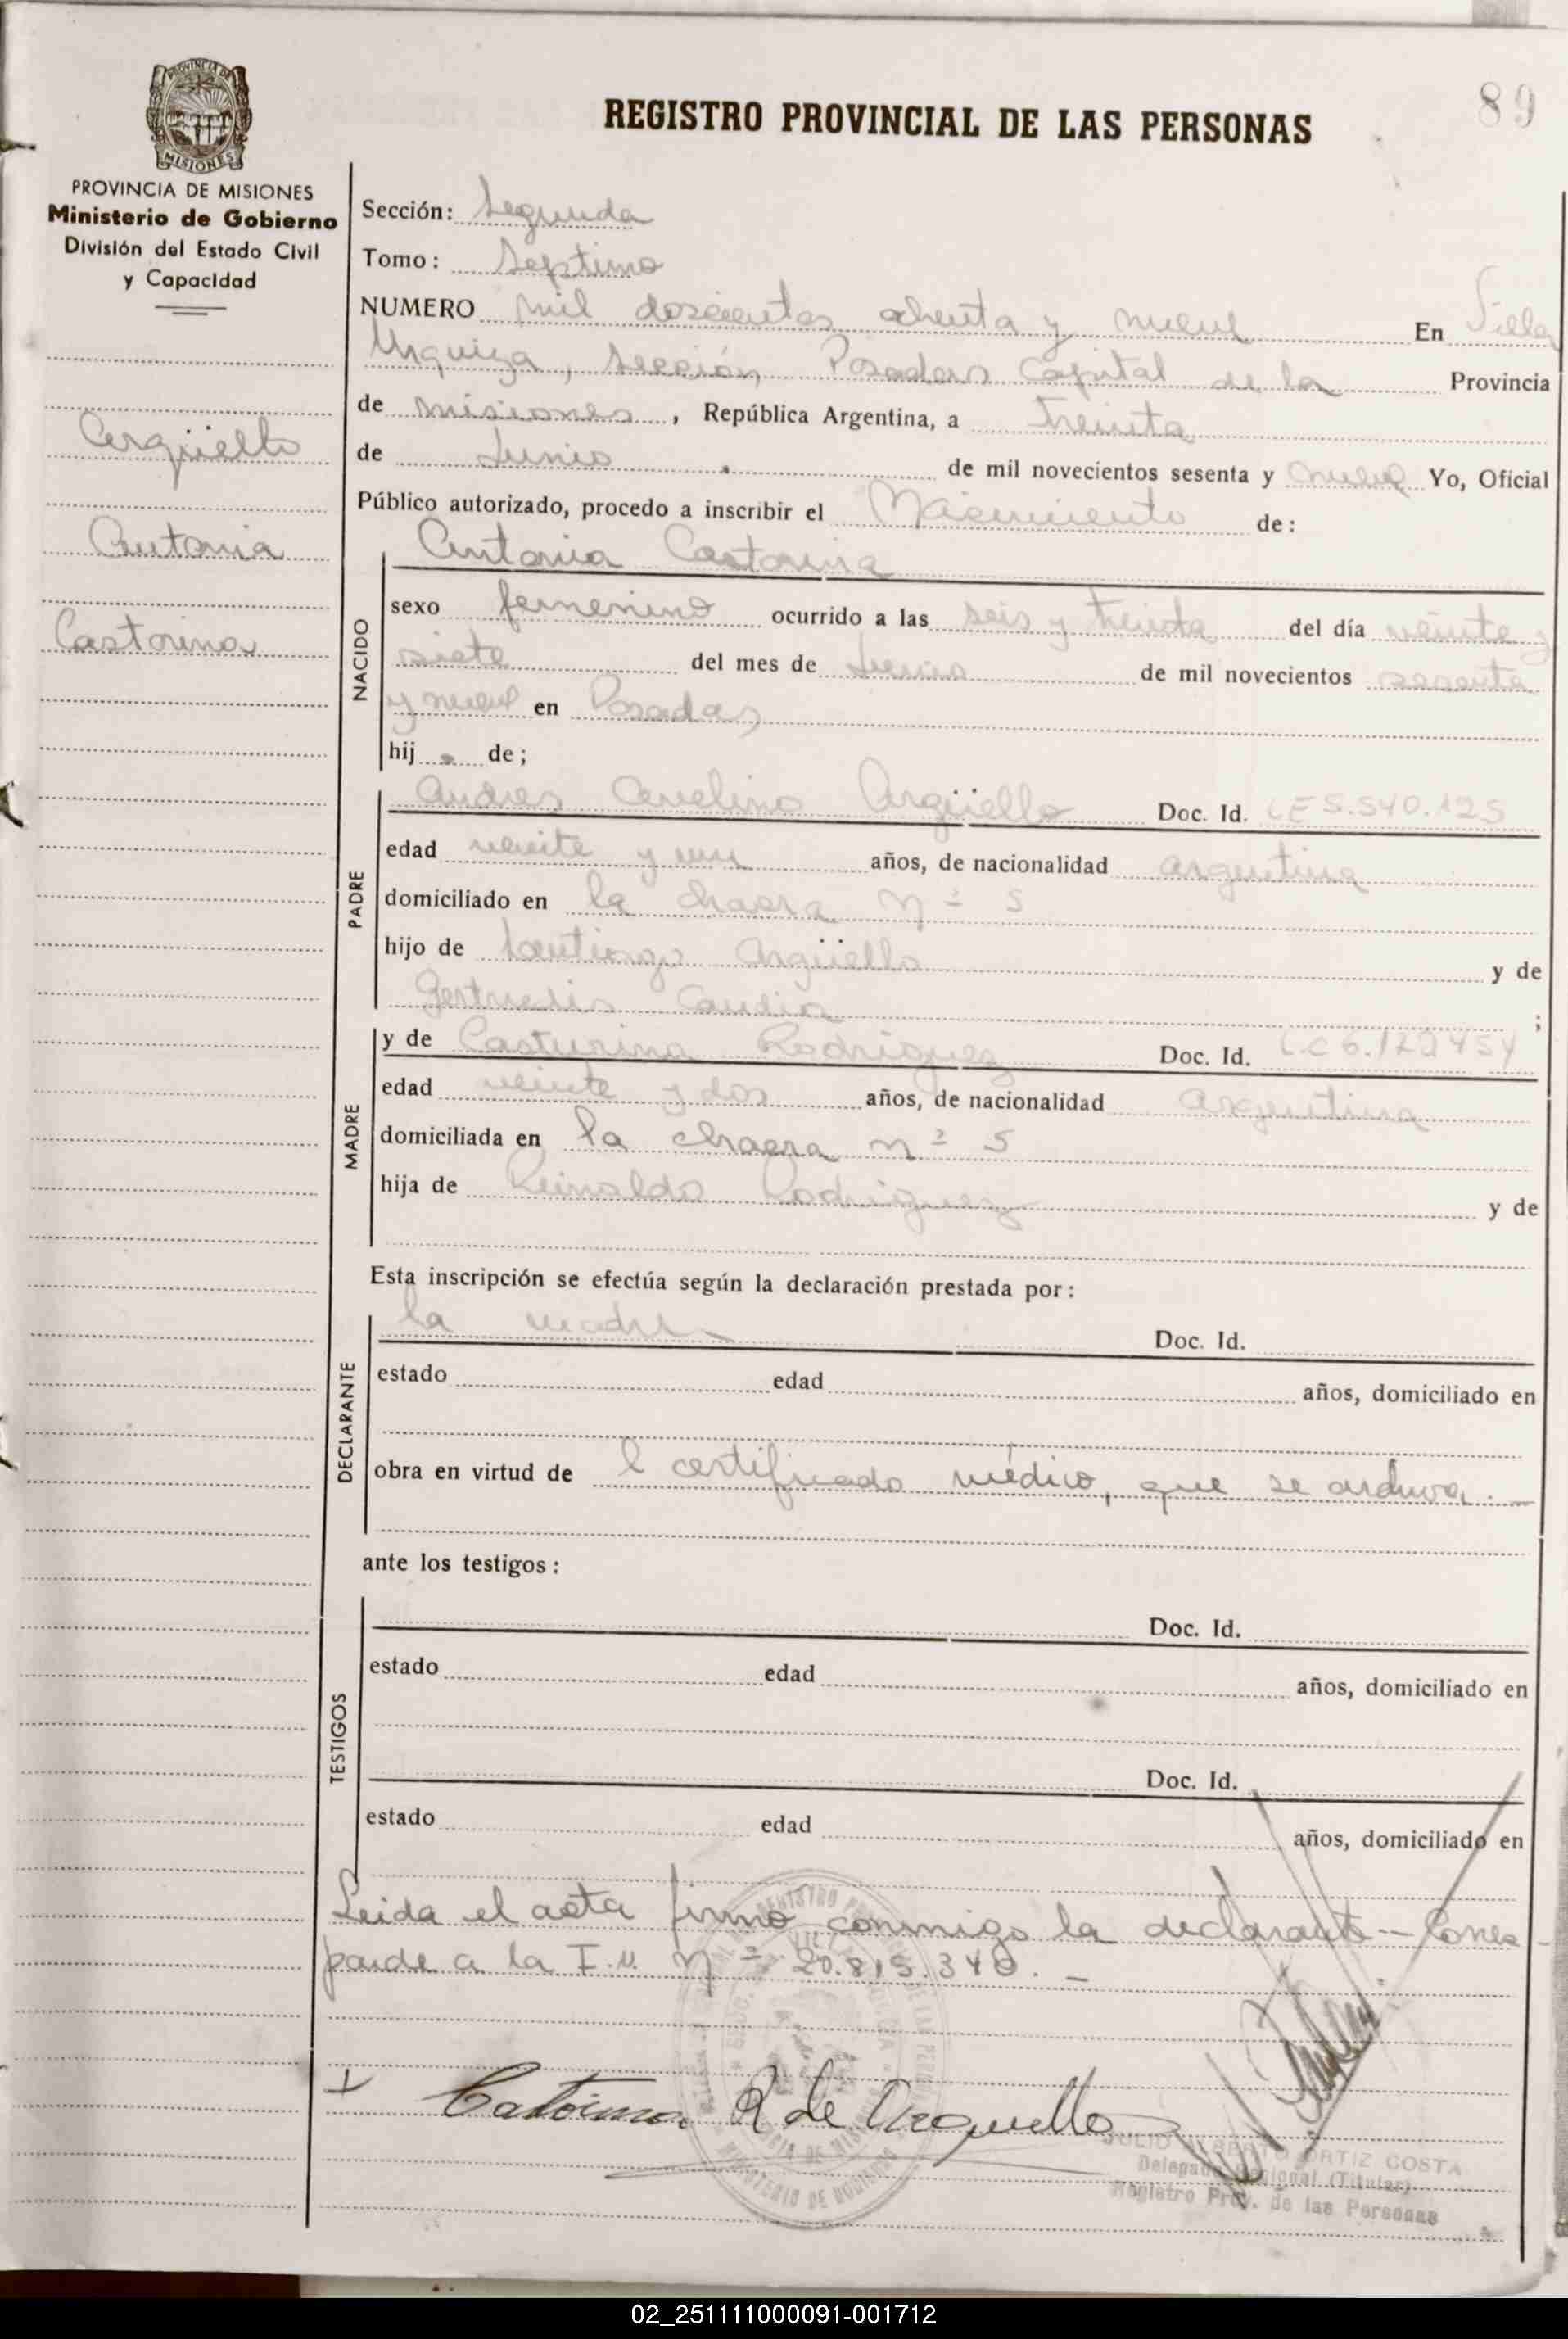 89
REGISTRO PROVINCIAL DE LAS PERSONAS
PROVINCIA DE
MISIONES
PROVINCIA DE MISIONES
Ministerio de Gobierno
División del Estado Civil
y Capacidad
Argüello
Antonia
Castorina
Sección: Segunda
Tomo: Septimo
NUMERO mil doscientos ochenta y nueve En Villa
Urquiza, Sección Posadas Capital de la Provincia
de Misiones, República Argentina, a treinta
de Junio de mil novecientos sesenta y nueve Yo, Oficial
Público autorizado, procedo a inscribir el Nacimiento de:
NACIDO
Antonia Castorina
sexo femenino ocurrido a las seis y treinta del día veinte y
siete del mes de Junio de mil novecientos sesenta
y nueve en Posadas
hij de;
PADRE
Andres Avelino Argüello Doc. Id. LE 5.540.125
edad veinte y un años, de nacionalidad argentina
domiciliado en la chacra nº 5
hijo de Santiago Argüello y de
Gertrudis ;
MADRE
y de Casturina Rodriguez Doc. Id. L.C 6.122454
edad veinte y dos años, de nacionalidad argentina
domiciliada en la chacra nº 5
hija de Reinaldo Rodriguez y de
Esta inscripción se efectúa según la declaración prestada por:
DECLARANTE
la madre Doc. Id.
estado edad años, domiciliado en
obra en virtud de l certificado médico, que se archiva.-
ante los testigos:
TESTIGOS
Doc. Id.
estado edad años, domiciliado en
Doc. Id.
estado edad años, domiciliado en
Leida el acta firmo conmigo la declarante - Corres-
ponde a la I.M. Nº 20.815.340.-
Catorina R de Arguello
JULIO ALBERTO ORTIZ COSTA
Delegado Regional (Titular)
Registro Prov. de las Personas
02_251111000091-001712